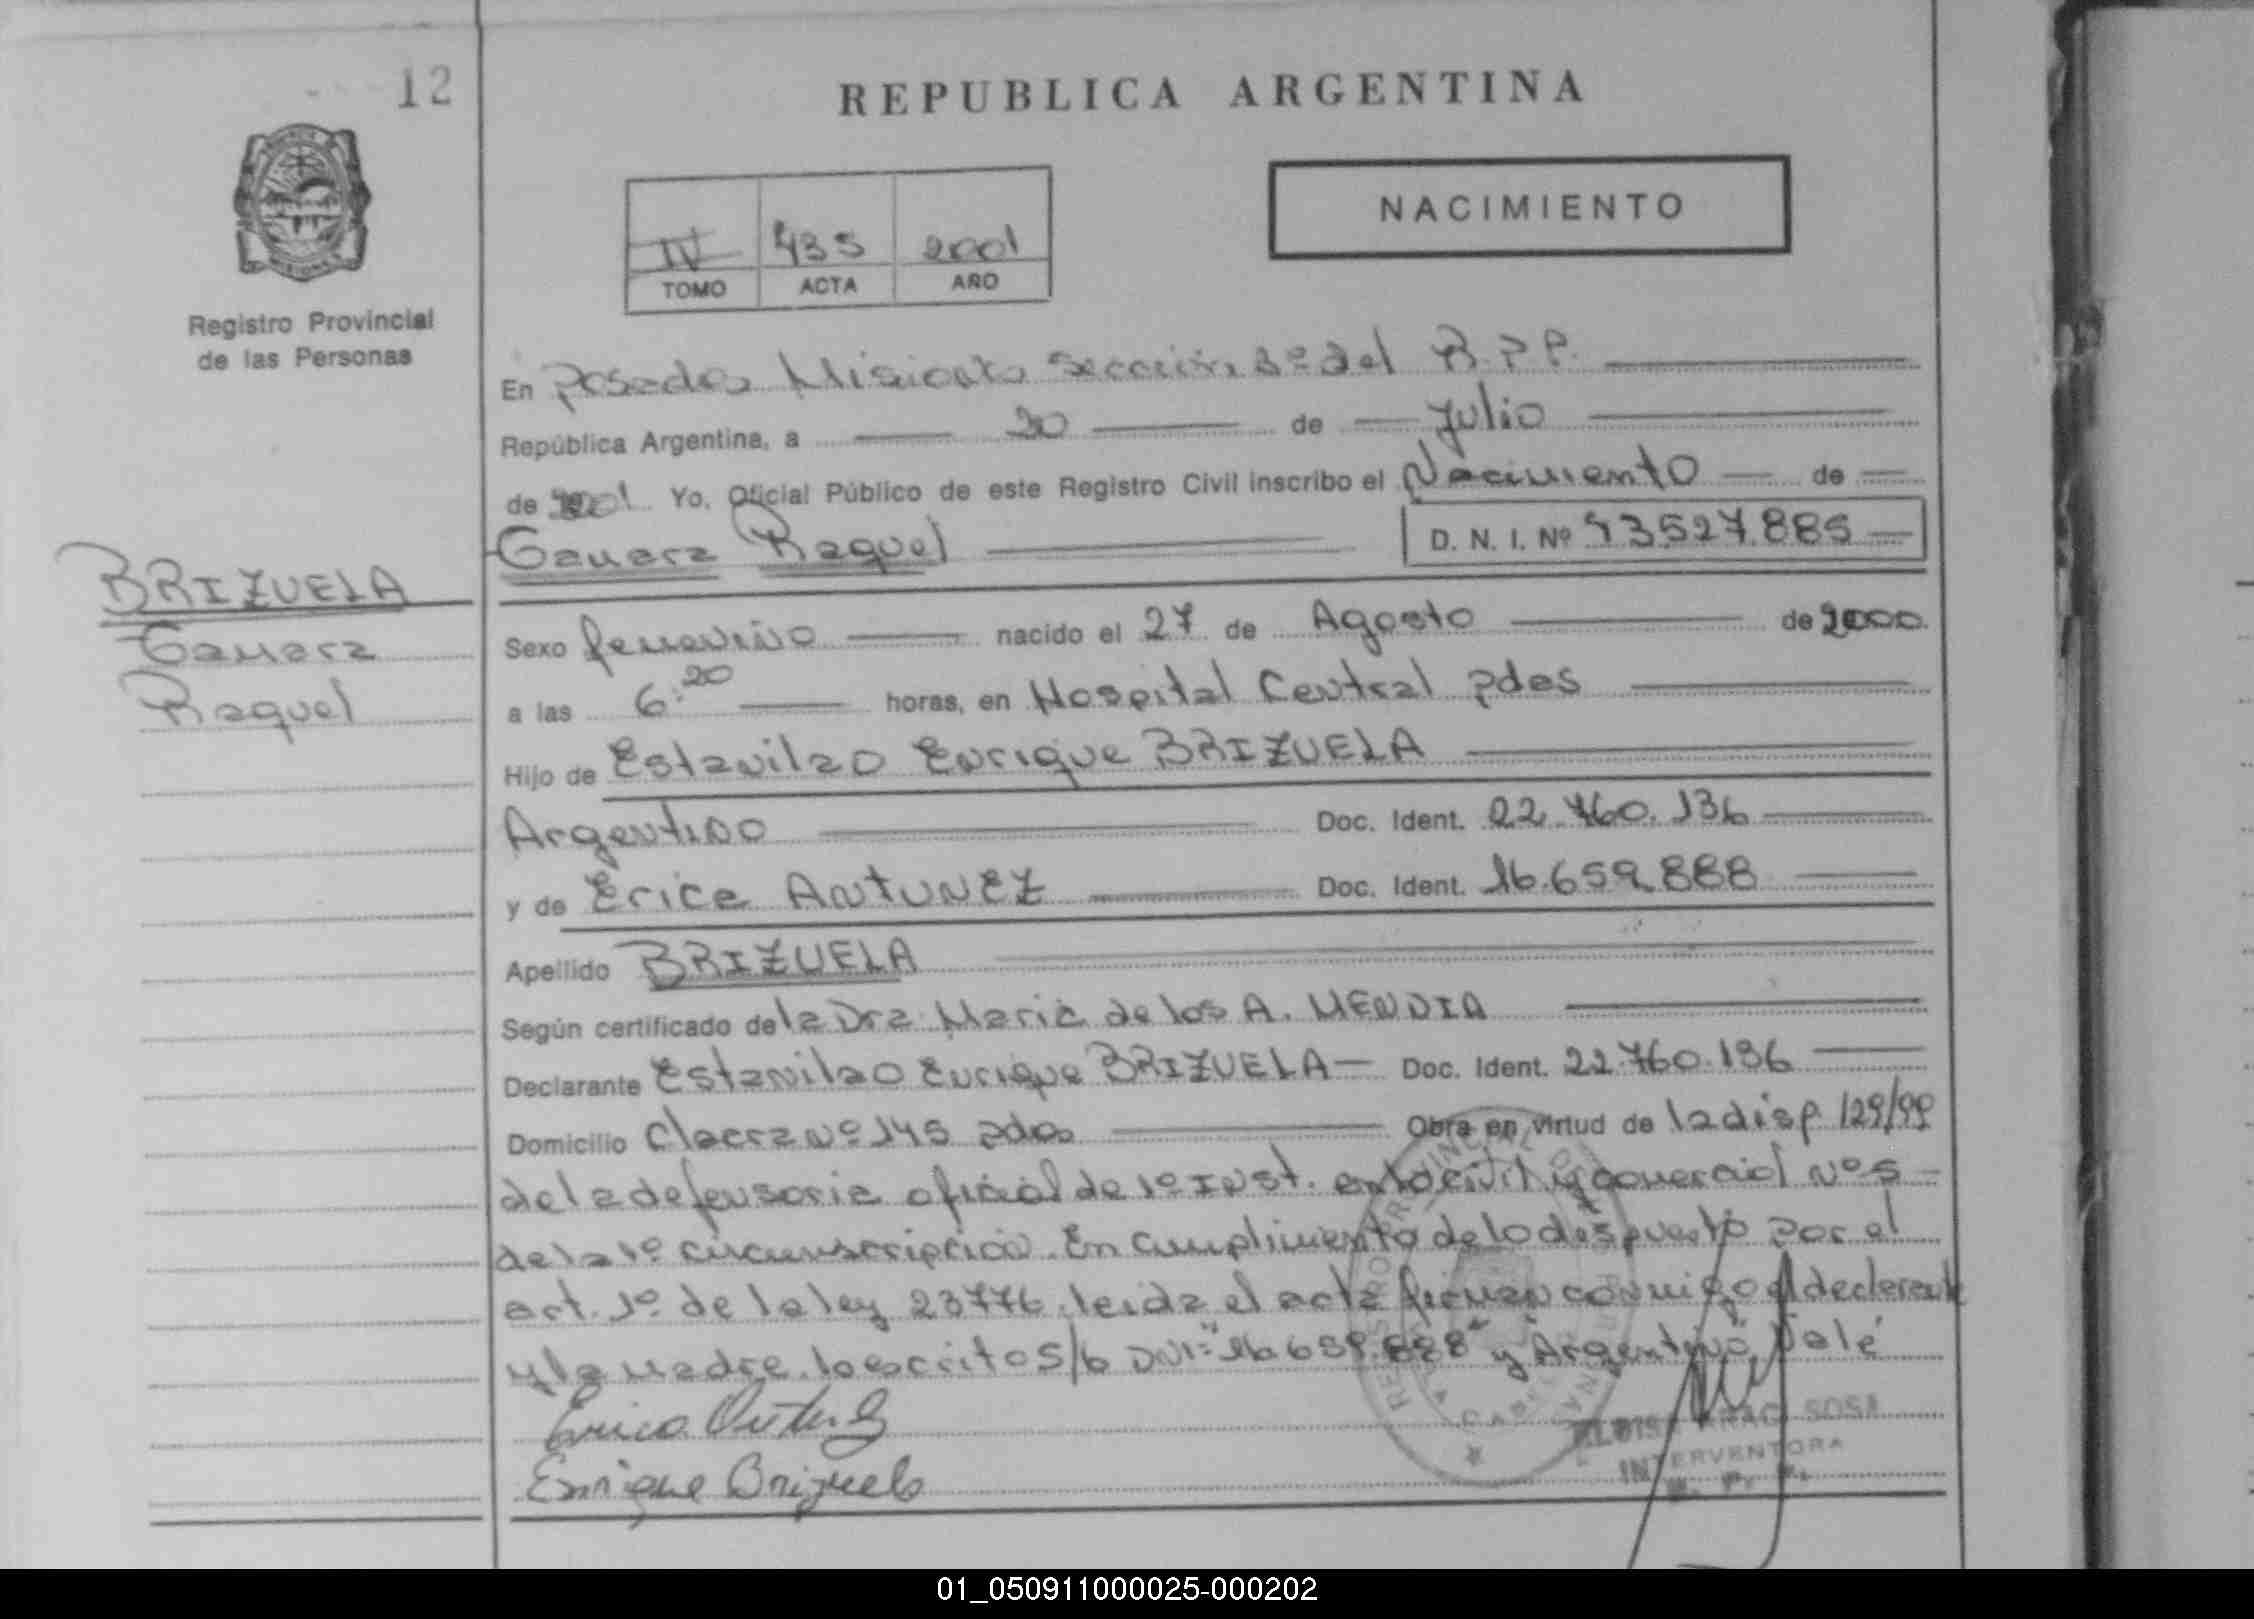 12
REPUBLICA ARGENTINA
NACIMIENTO
IV 435 2001
TOMO ACTA AÑO
Registro Provincial
de las Personas
En Posadas Misiones Sección 3º del R.P.P.
República Argentina, a 20 de Julio
de 2001 Yo, Oficial Público de este Registro Civil inscribo el Nacimiento de
Raquel
D. N. I. Nº 43527.885
BRIZUELA
Raquel
Sexo femenino nacido el 27 de Agosto de 2000
a las 6:20 horas, en Hospital Central pdas
Hijo de Estanilao Enrique BRIZUELA
Argentino Doc. Ident. 22.760.136
y de Erica ANTUNEZ Doc. Ident. 16.659.888
Apellido BRIZUELA
Según certificado de la Dra Maria de los A. MENDIA
Declarante Estanilao Enrique BRIZUELA Doc. Ident. 22.760.136
Domicilio Chacra Nº 145 pdas Obra en virtud de la disp. 129/99
de la defensoria oficial de 1º Inst. en lo civil y comercial Nº 5
de la 1º circunscripción. En cumplimiento de lo dispuesto por el
art. 1º de la ley 23776, leida el acta firman conmigo el declarante
y la madre. lo escrito s/b DNI: "16.659.888" y "Argentino" Vale
Enrique Brizuela
SOSA
INTERVENTORA
01_050911000025-000202